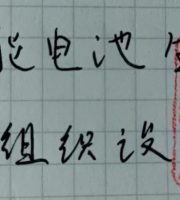 电池
组织设